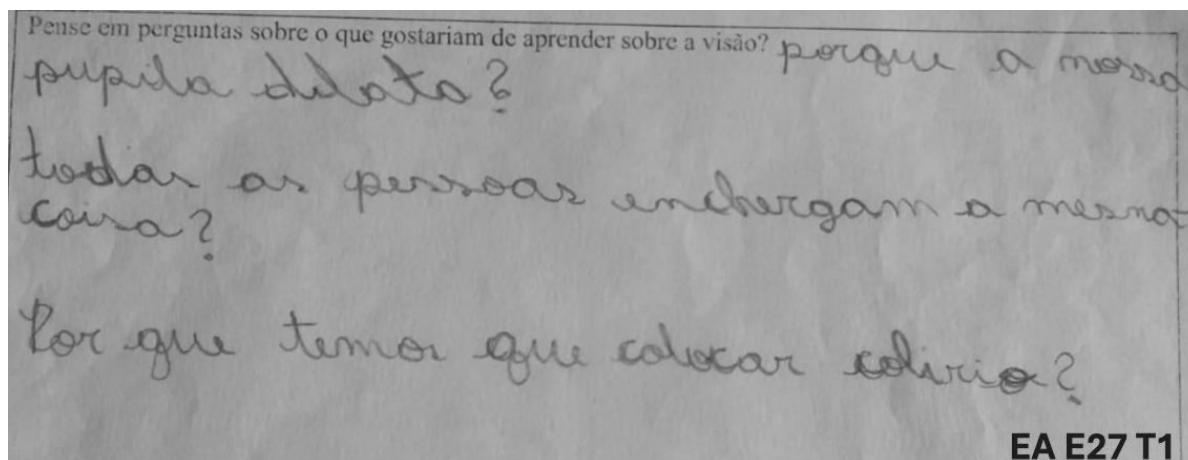 Pense em perguntas sobre o que gostariam de aprender sobre a visão? porque a nossa
pupila dilata?
todas as pessoas enchergam a mesma
coisa?
Por que temos que colocar colirio?
EA E27 T1